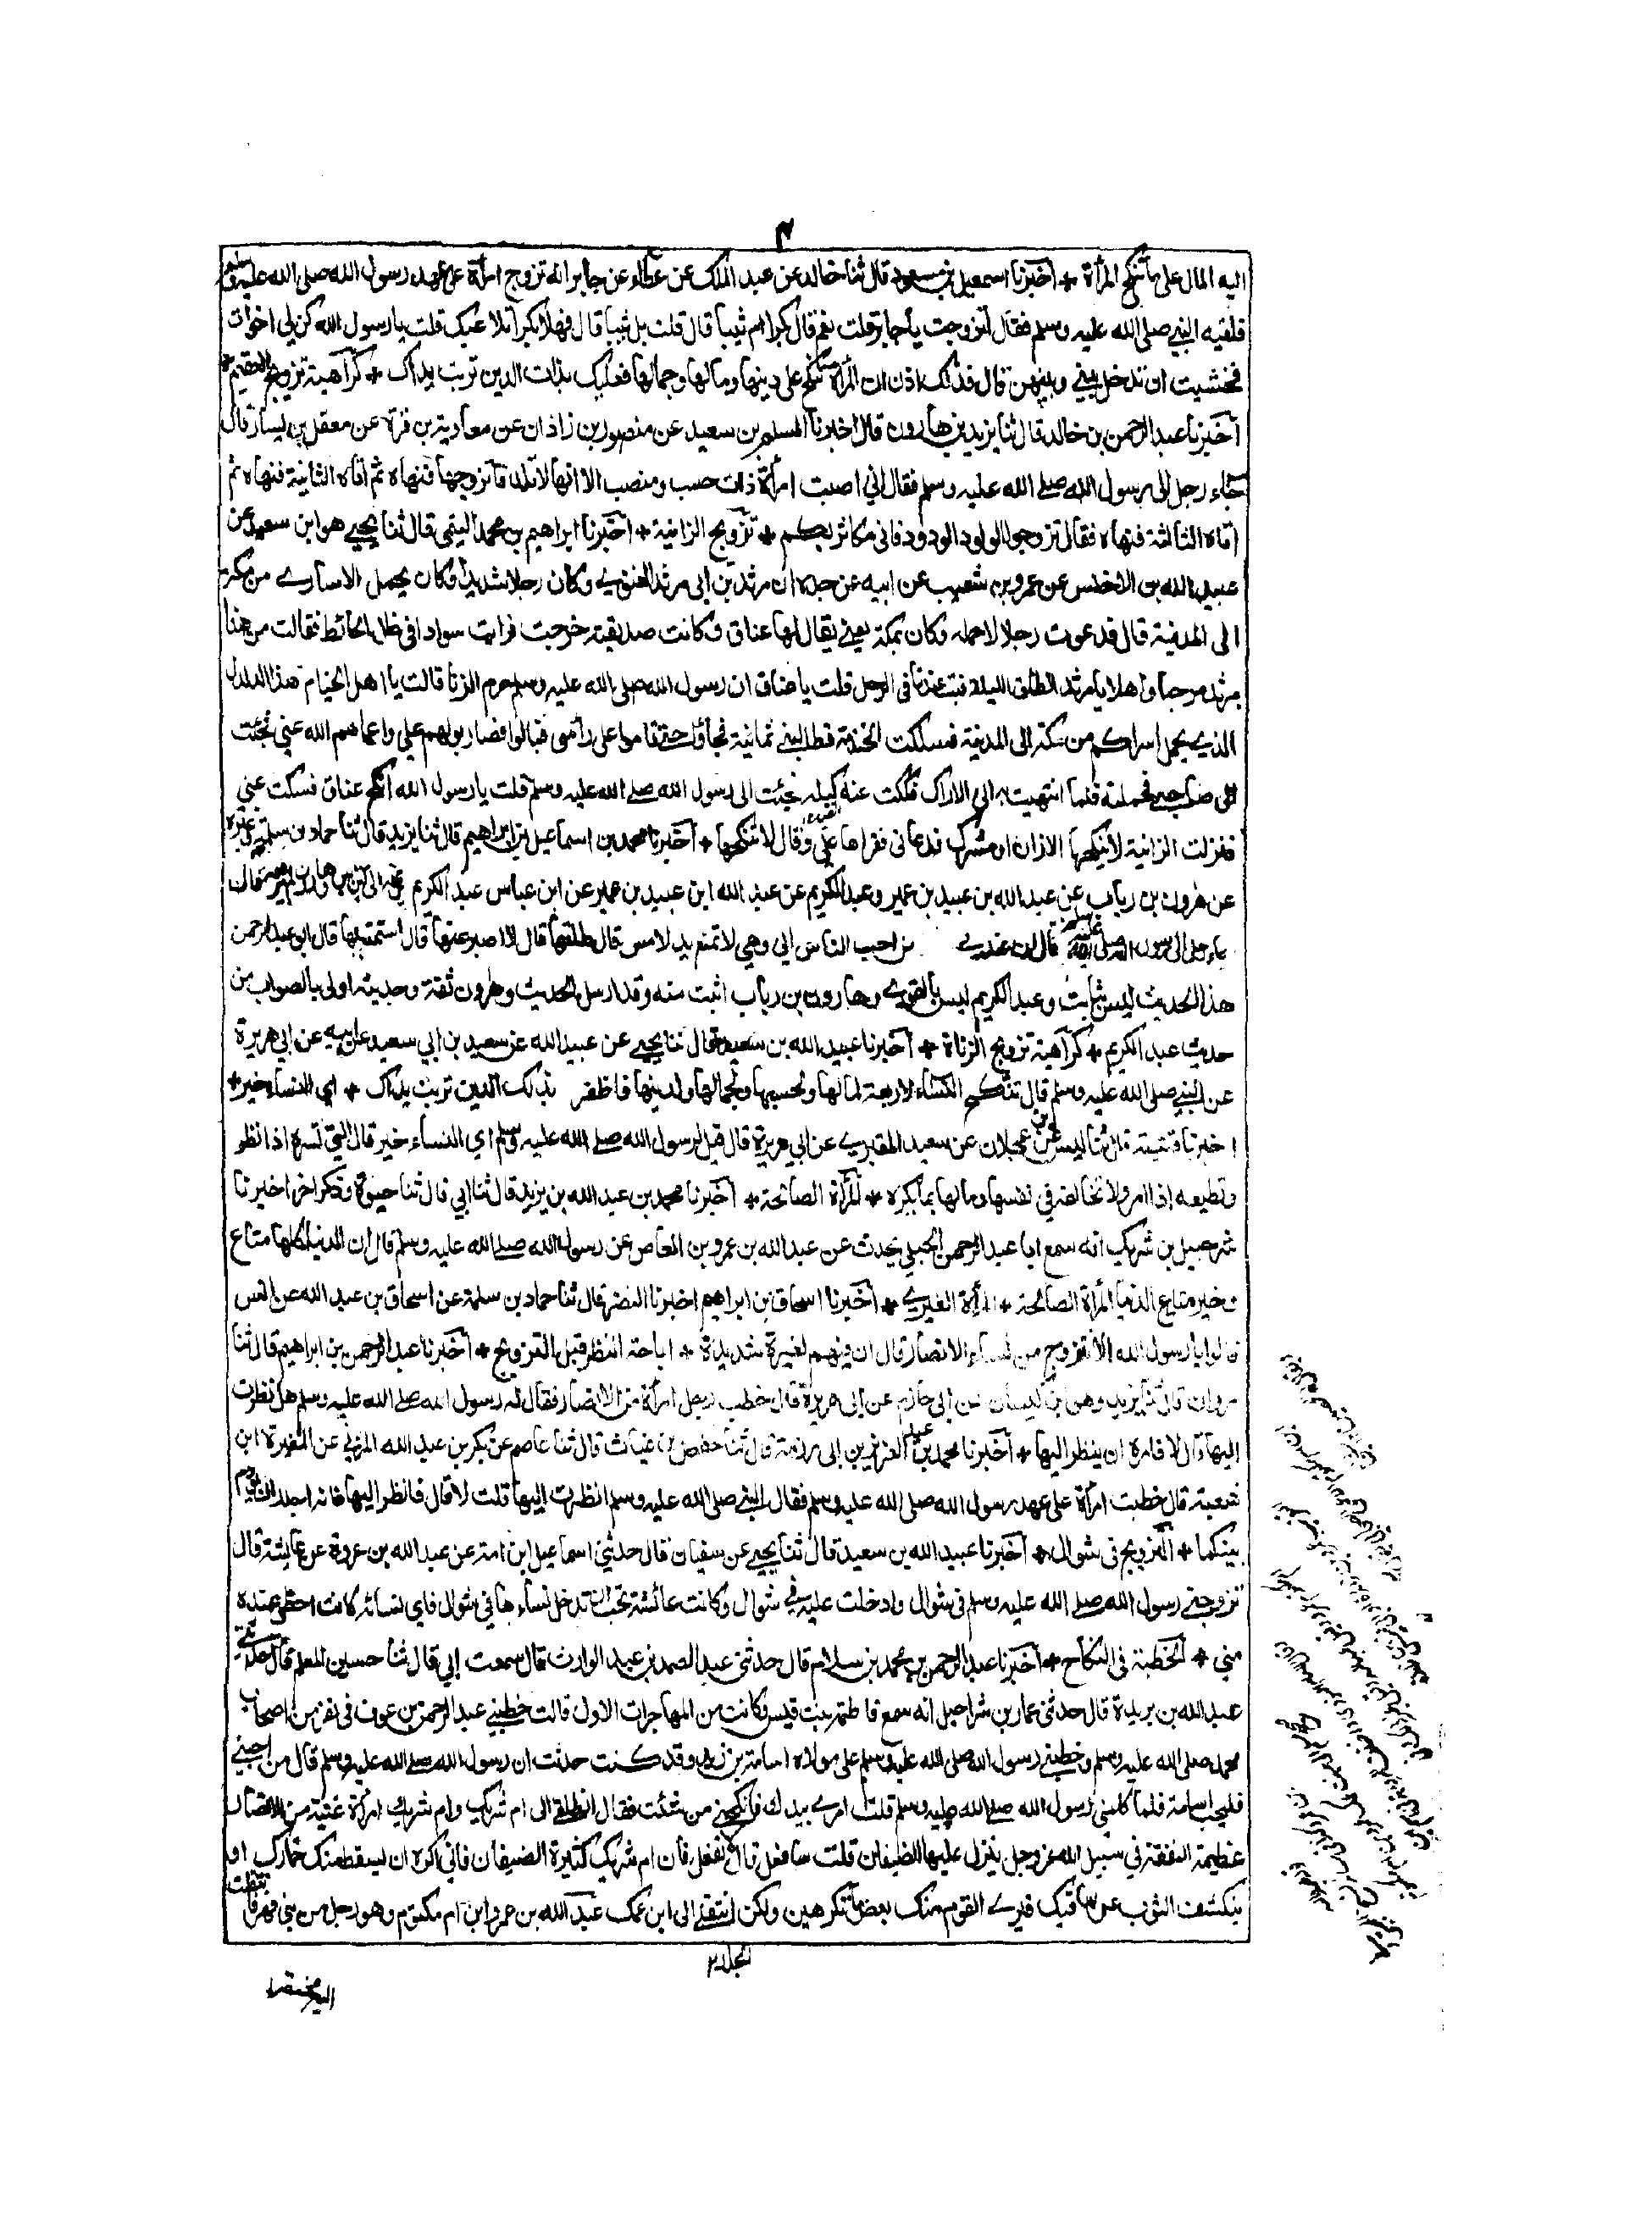 ٣
اليه المال على ما تنكح المرأة + اخبرنا اسمعيل بن مسعود قال ثنا خالد عن عبد الملك عن عطاء عن جابر انه تزوج امرأة على عهد رسول الله صلى الله عليه وسلم
فلقيه النبي صلى الله عليه وسلم فقال اتزوجت يا جابر قلت نعم قال بكرا ام ثيبا قال قلت بل ثيبا قال فهلا بكرا تلاعبك قلت يا رسول الله كن لي اخوات
فخشيت ان تدخل بيني وبينهن قال فذلك اذن ان المرأة تنكح على دينها ومالها وجمالها فعليك بذات الدين تربت يداك + كراهية تزويج العقيم +
اخبرنا عبد الرحمن بن خالد قال ثنا يزيد بن هارون قال اخبرنا المسلم بن سعيد عن منصور بن زاذان عن معاوية بن قرة عن معقل بن يسار قال
جاء رجل الى رسول الله صلى الله عليه وسلم فقال اني اصبت امرأة ذات حسب ومنصب الا انها لا تلد فاتزوجها فنهاه ثم اتاه الثانية فنهاه ثم
اتاه الثالثة فنهاه فقال تزوجوا الولود الودود فاني مكاثر بكم + تزويج الزانية + اخبرنا ابراهيم بن محمد التيمي قال ثنا يحيى هو ابن سعيد عن
عبيد الله بن الاخنس عن عمرو بن شعيب عن ابيه عن جده ان مرثد بن ابي مرثد الغنوي وكان رجلا شديدا وكان يحمل الاسارى من مكة
الى المدينة قال فدعوت رجلا لاحمله وكان بمكة بغي يقال لها عناق وكانت صديقته خرجت فرات سوادا في ظل الحائط فقالت من هذا
مرثد مرحبا واهلا يا مرثد انطلق الليلة فبت عندنا في الرحل قلت يا عناق ان رسول الله صلى الله عليه وسلم حرم الزنا قالت يا اهل الخيام هذا الدلدل
الذي يحمل اسراكم من مكة الى المدينة فسلكت الخندمة فطلبني ثمانية فجاؤا حتى قاموا على رأسي فبالوا فصار بولهم علي واعماهم الله عني فجئت
الى صاحبي فحملته فلما انتهيت به الى الاراك فككت عنه كبله فجئت الى رسول الله صلى الله عليه وسلم قلت يا رسول الله انكح عناق فسكت عني
فنزلت الزانية لا ينكحها الا زان او مشرك فدعاني فقراها علي وقال لا تنكحها + اخبرنا محمد بن اسماعيل بن ابراهيم قال ثنا يزيد قال ثنا حماد بن سلمة وغيره
عن هرون بن رياب عن عبد الله بن عبيد بن عمير وعبد الكريم عن عبد الله ابن عبيد بن عمير عن ابن عباس عبد الكريم
جاء رجل الى رسول الله صلى الله عليه وسلم قال ان عندي من احب الناس الي وهي لا تمنع يد لامس قال طلقها قال لا اصبر عنها قال استمتع بها قال ابو عبد الرحمن
هذا الحديث ليس بثابت وعبد الكريم ليس بالقوي وهارون بن رياب اثبت منه وقد ارسل الحديث وهرون ثقة وحديثه اولى بالصواب من
حديث عبد الكريم + كراهية تزويج الزناة + اخبرنا عبيد الله بن سعيد قال ثنا يحيى عن عبيد الله عن سعيد بن ابي سعيد عن ابيه عن ابي هريرة
عن النبي صلى الله عليه وسلم قال تنكح النساء لاربعة لمالها ولحسبها ولجمالها ولدينها فاظفر بذات الدين تربت يداك + اي النساء خير +
اخبرنا قتيبة قال ثنا الليث عن ابن عجلان عن سعيد المقبري عن ابي هريرة قال قيل لرسول الله صلى الله عليه وسلم اي النساء خير قال التي تسره اذا نظر
وتطيعه اذا امر ولا تخالفه في نفسها ومالها بما يكره + المرأة الصالحة + اخبرنا محمد بن عبد الله بن يزيد قال ثنا ابي قال ثنا حيوة وذكر اخر اخبرنا
شرحبيل بن شريك انه سمع ابا عبد الرحمن الحبلي يحدث عن عبد الله بن عمرو بن العاص عن رسول الله صلى الله عليه وسلم قال ان الدنيا كلها متاع
وخير متاع الدنيا المرأة الصالحة + المرأة الغيرى + اخبرنا اسحاق بن ابراهيم اخبرنا النضر قال ثنا حماد بن سلمة عن اسحاق بن عبد الله عن انس
قالوا يا رسول الله الا تتزوج من نساء الانصار قال ان فيهم لغيرة شديدة + اباحة النظر قبل التزويج + اخبرنا عبد الرحمن بن ابراهيم قال ثنا
مروان قال ثنا يزيد وهو ابن كيسان عن ابي حازم عن ابي هريرة قال خطب رجل امرأة من الانصار فقال له رسول الله صلى الله عليه وسلم هل نظرت
اليها قال لا فامره ان ينظر اليها + اخبرنا محمد بن عبد العزيز بن ابي رزمة قال ثنا حفص بن غياث قال ثنا عاصم عن بكر بن عبد الله المزني عن المغيرة ابن
شعبة قال خطبت امرأة على عهد رسول الله صلى الله عليه وسلم فقال النبي صلى الله عليه وسلم انظرت اليها قلت لا قال فانظر اليها فانه اجدر ان يؤدم
بينكما + التزويج في شوال + اخبرنا عبيد الله بن سعيد قال ثنا يحيى عن سفيان قال حدثني اسماعيل ابن امية عن عبد الله بن عروة عن عايشة قال
تزوجني رسول الله صلى الله عليه وسلم في شوال وادخلت عليه في شوال وكانت عائشة تحب ان تدخل نساءها في شوال فاي نسائه كانت احظى عنده
مني + الخطبة في النكاح + اخبرنا عبد الرحمن بن محمد بن سلام قال حدثني عبد الصمد بن عبد الوارث قال سمعت ابي قال ثنا حسين المعلم قال حدثني
عبد الله بن بريدة قال حدثني عمار بن شراحيل انه سمع فاطمة بنت قيس وكانت من المهاجرات الاول قالت خطبني عبد الرحمن بن عوف في نفر من اصحاب
محمد صلى الله عليه وسلم وخطبني رسول الله صلى الله عليه وسلم على مولاه اسامة بن زيد وقد كنت حدثت ان رسول الله صلى الله عليه وسلم قال من احبني
فليحب اسامة فلما كلمني رسول الله صلى الله عليه وسلم قلت امري بيدك فانكحني من شئت فقال انطلقي الى ام شريك وام شريك امرأة غنية من الانصار
عظيمة النفقة في سبيل الله عز وجل ينزل عليها الضيفان قلت سافعل قال لا تفعلي فان ام شريك كثيرة الضيفان فاني اكره ان يسقط منك خمارك او
ينكشف الثوب عن ساقيك فيرى القوم منك بعض ما تكرهين ولكن انتقلي الى ابن عمك عبد الله بن عمرو ابن ام مكتوم وهو رجل من بني فهر فانتقلت
المجلد ٢
اليه مختصر